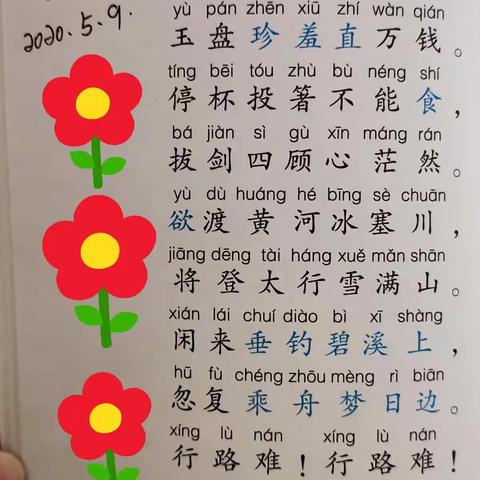 2020.5.9.
yù pán zhēn xiū zhí wàn qián
玉盘珍羞直万钱。
tíng bēi tóu zhù bù néng shí
停杯投箸不能食，
bá jiàn sì gù xīn máng rán
拔剑四顾心茫然。
yù dù huáng hé bīng sè chuān
欲渡黄河冰塞川，
jiāng dēng tài háng xuě mǎn shān
将登太行雪满山。
xián lái chuí diào bì xī shàng
闲来垂钓碧溪上，
hū fù chéng zhōu mèng rì biān
忽复乘舟梦日边。
xíng lù nán xíng lù nán
行路难！行路难！